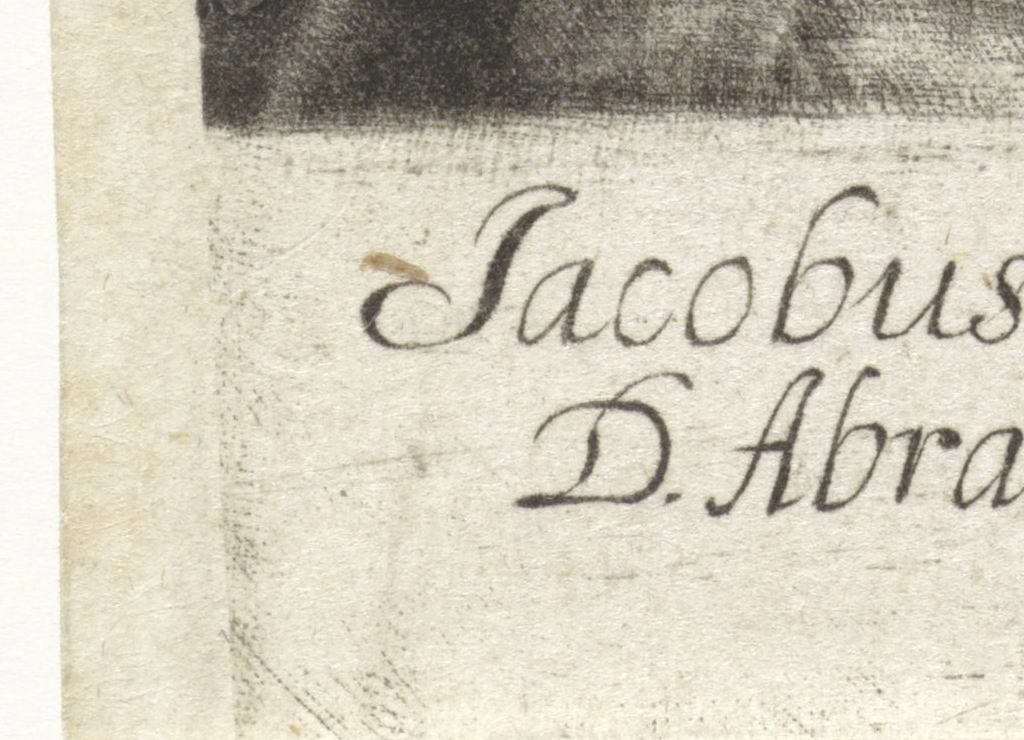 Jacobus
D. Abra